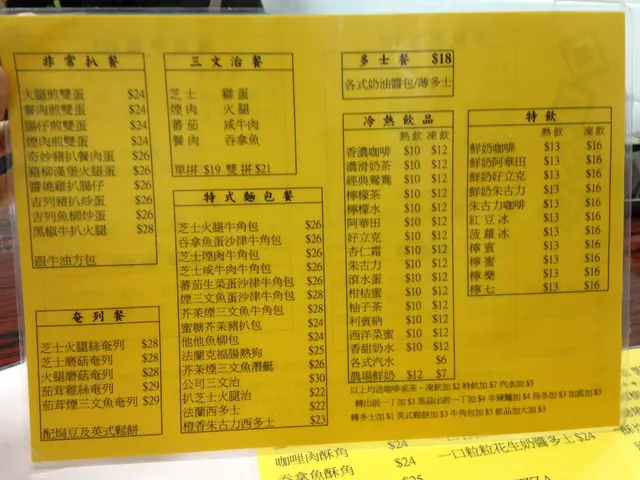 非常扒餐
火腿煎雙蛋 $24
餐肉煎雙蛋 $24
腸仔煎雙蛋 $24
煙肉煎雙蛋 $24
奇妙豬扒餐肉蛋 $26
豬柳漢堡火腿蛋 $26
醬燒雞扒腸仔 $26
吉列豬扒炒蛋 $26
吉列魚柳炒蛋 $26
黑椒牛扒火腿 $28
跟牛油方包
奄列餐
芝士火腿絲奄列 $28
芝士磨菇奄列 $28
火腿磨菇奄列 $28
茄茸雞絲奄列 $29
茄茸煙三文魚奄列 $29
配焗豆及英式鬆餅
三文治餐
芝士 雞蛋
煙肉 火腿
蕃茄 咸牛肉
餐肉 吞拿魚
單拼 $19 雙拼 $21
特式麵包餐
芝士火腿牛角包 $26
吞拿魚蛋沙律牛角包 $26
芝士煙肉牛角包 $26
芝士咸牛肉牛角包 $26
蕃茄生菜蛋沙律牛角包 $26
煙三文魚蛋沙律牛角包 $28
芥茉煙三文魚牛角包 $28
蜜糖芥茉豬扒包 $24
他他魚柳包 $24
法蘭克福腸熱狗 $25
芥茉煙三文魚潛艇 $26
公司三文治 $30
扒芝士火腿治 $22
法蘭西多士 $22
橙香朱古力西多士 $23
多士餐 $18
各式奶油醬包/薄多士
冷熱飲品
熱飲 凍飲
香濃咖啡 $10 $12
濃滑奶茶 $10 $12
經典鴛鴦 $10 $12
檸檬茶 $10 $12
檸檬水 $10 $12
阿華田 $10 $12
好立克 $10 $12
杏仁霜 $10 $12
朱古力 $10 $12
滾水蛋 $10 $12
柑桔蜜 $10 $12
柚子茶 $10 $12
利賓納 $10 $12
西洋菜蜜 $10 $12
香甜奶水 $10 $12
各式汽水 $6
農場鮮奶 $12 $7
特飲
熱飲 凍飲
鮮奶咖啡 $13 $16
鮮奶阿華田 $13 $16
鮮奶好立克 $13 $16
鮮奶朱古力 $13 $16
朱古力咖啡 $13 $16
紅豆冰 $13 $16
菠蘿冰 $13 $16
檸賓 $13 $16
檸蜜 $13 $16
檸樂 $13 $16
檸七 $13 $16
以上均送咖啡或茶，凍飲加 $2 特飲加 $7 汽水加 $5
轉出前一丁加 $3 黑蒜出前一丁加 $4 辛辣麵加 $4 烏冬加 $5 加底加 $5
轉多士加 $1 英式鬆餅加 $3 牛角包加 $5 飲品加大加 $3
咖哩肉酥角 $24
吞拿魚酥角 $25
一口粒粒花生奶醬多士 $24